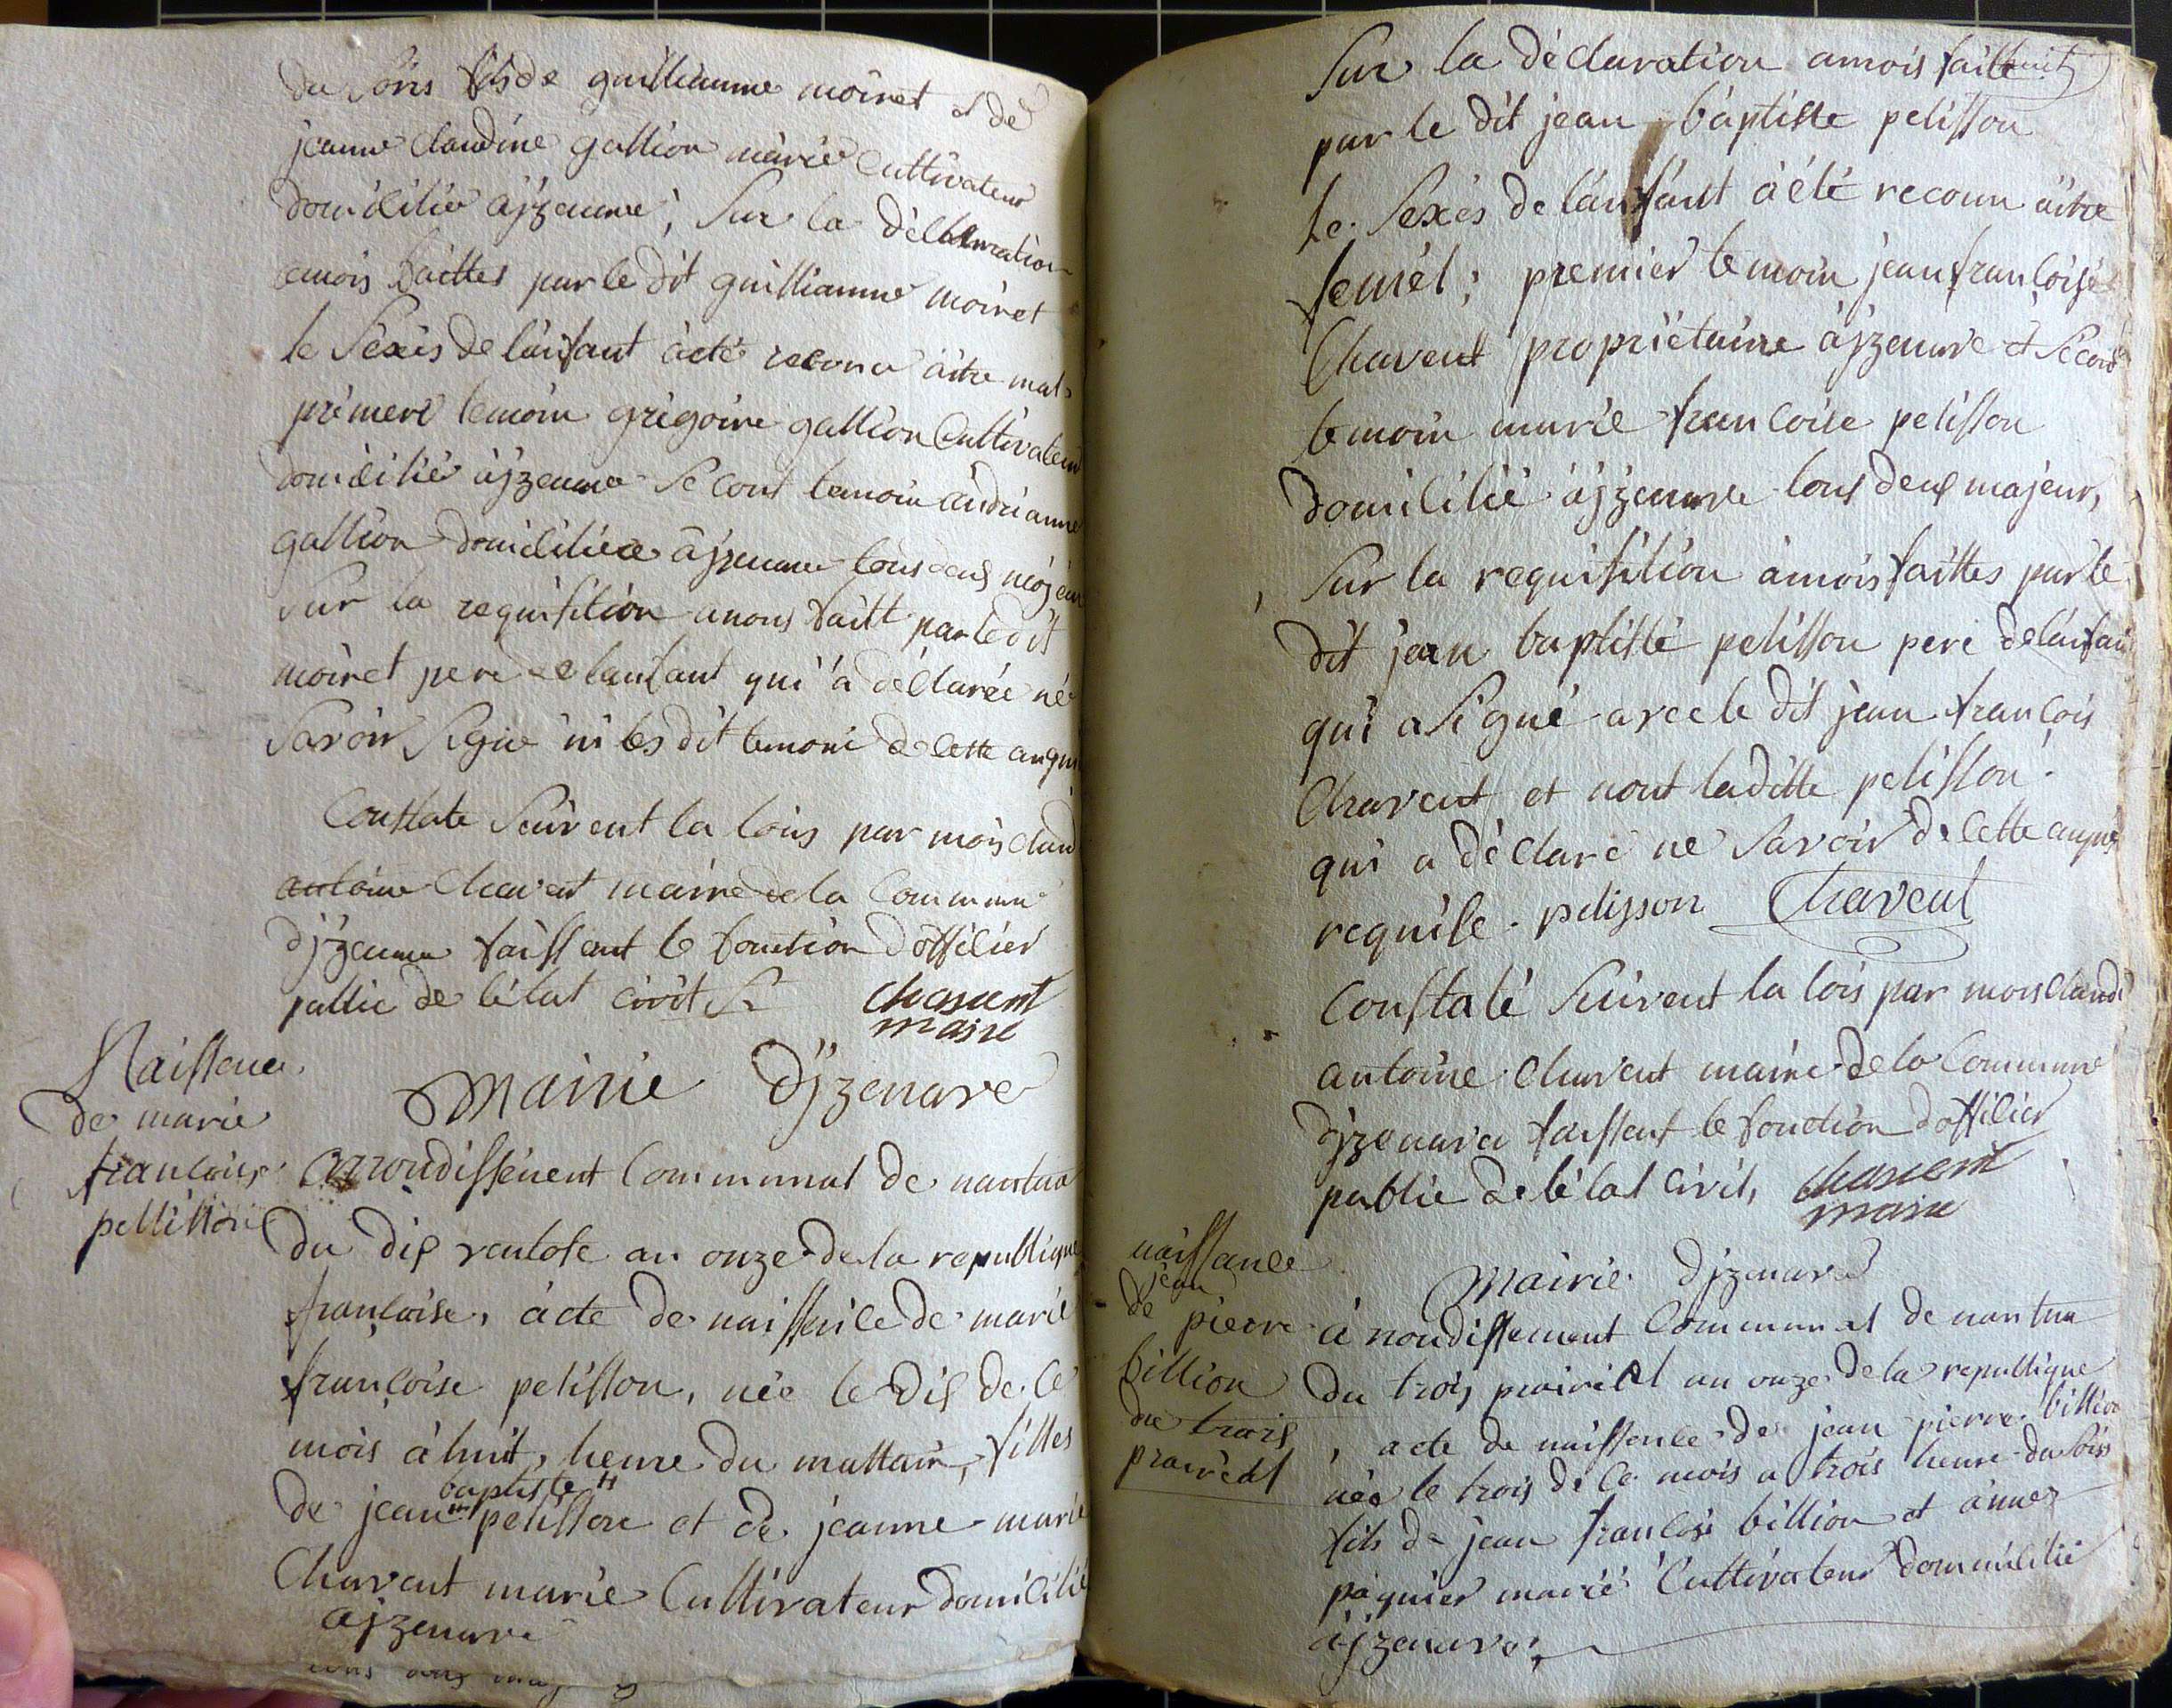 du soirs fils de guilliaume moiret et de
jeanne claudine gallion mariée cultivateur
domicilié àyzenave, Sur la déclaration
amois faittes par le dit guilliaume moiret
le Sexes de lanfant àeté reconu aitre mal
premere temoin grégoire gallion Cultivateur
domicilié àyzenave Second temoin andrianne
gallion domiciliée àyzenave tous deux majeur
Sur la requisition anous faitt par le dit
moiret pere de lanfant qui a déclarée né
Savoir Signe ni les dit temoin de cette anquis
Constate Suivent la lois par mois claud
antoine Chavent maire de la Commune
dyzenave faissent le fonction dofficier
public de létat civit
chavent
maire
Naissence
de marie
francoise
pellisson
Mairie dyzenave
Arrondissement Communal de nantua
du dix ventose an onze de la republique
française, acte de naissence de marie
françoise pelisson, née le dix de ce
mois à huit heure du mattain, filles
baptiste
de jean pelisson et de jeanne marie
Chavent marie Cultivateur domicilié
ayzenave
Sur la déclaration amois faitte
par le dit jean baptiste pelisson
Le Sexes de lanfant à été reconu aitre
femel; premier temoin jean françoise
Chavent propriétaire àyzenave et Second
temoin marie francoise pelisson
domicilié àyzenave tous deux majeur,
Sur la requisition àmois faittes par le
dit jean baptiste pelisson pere de lanfan
qui a Signé avec le dit jean françois
Chavent et nont laditte pelisson
qui a déclaré ne Savoir de cette anquis
requise. pelisson Chavent
Constaté Suivent la lois par mois claude
antoine chavent maire de la Commune
dyzenave faissent le fonction dofficier
public de létat civil, chavent
maire
naissance
jean
de pierre
billion
du trois
prairial
Mairie dyzenave
à rondissement Communal de nantua
du trois prairial an onze de la republique
, acte de naissence de jean pierre billion
née le trois de ce mois a trois heure du soirs
fils de jean francois billion et annez
paquier marié Cultivateur dommicilié
àyzenave,